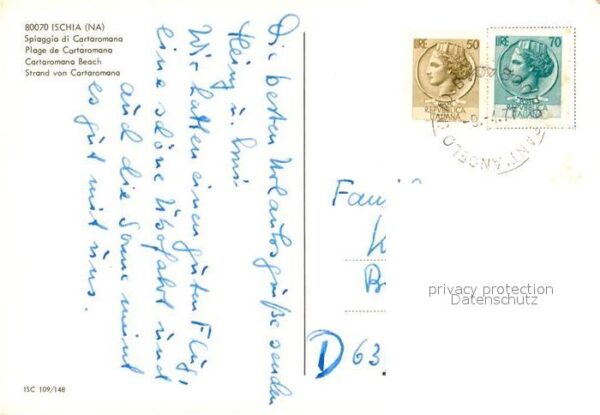 80070 ISCHIA (NA)
Spiaggia di Cartaromana
Plage de Cartaromana
Cartaromana Beach
Strand von Cartaromana
Die besten Urlaubsgrüße senden
Heinz u.
Wir hatten einen guten Flug,
eine schöne Überfahrt und
auch die Sonne meint
es gut mit uns.
ISC 109/148
LIRE 50
REPVBBLICA
ITALIANA
LIRE 70
ITALIANA
SANT'ANGELO
Fami
K
B
D 63
privacy protection
Datenschutz